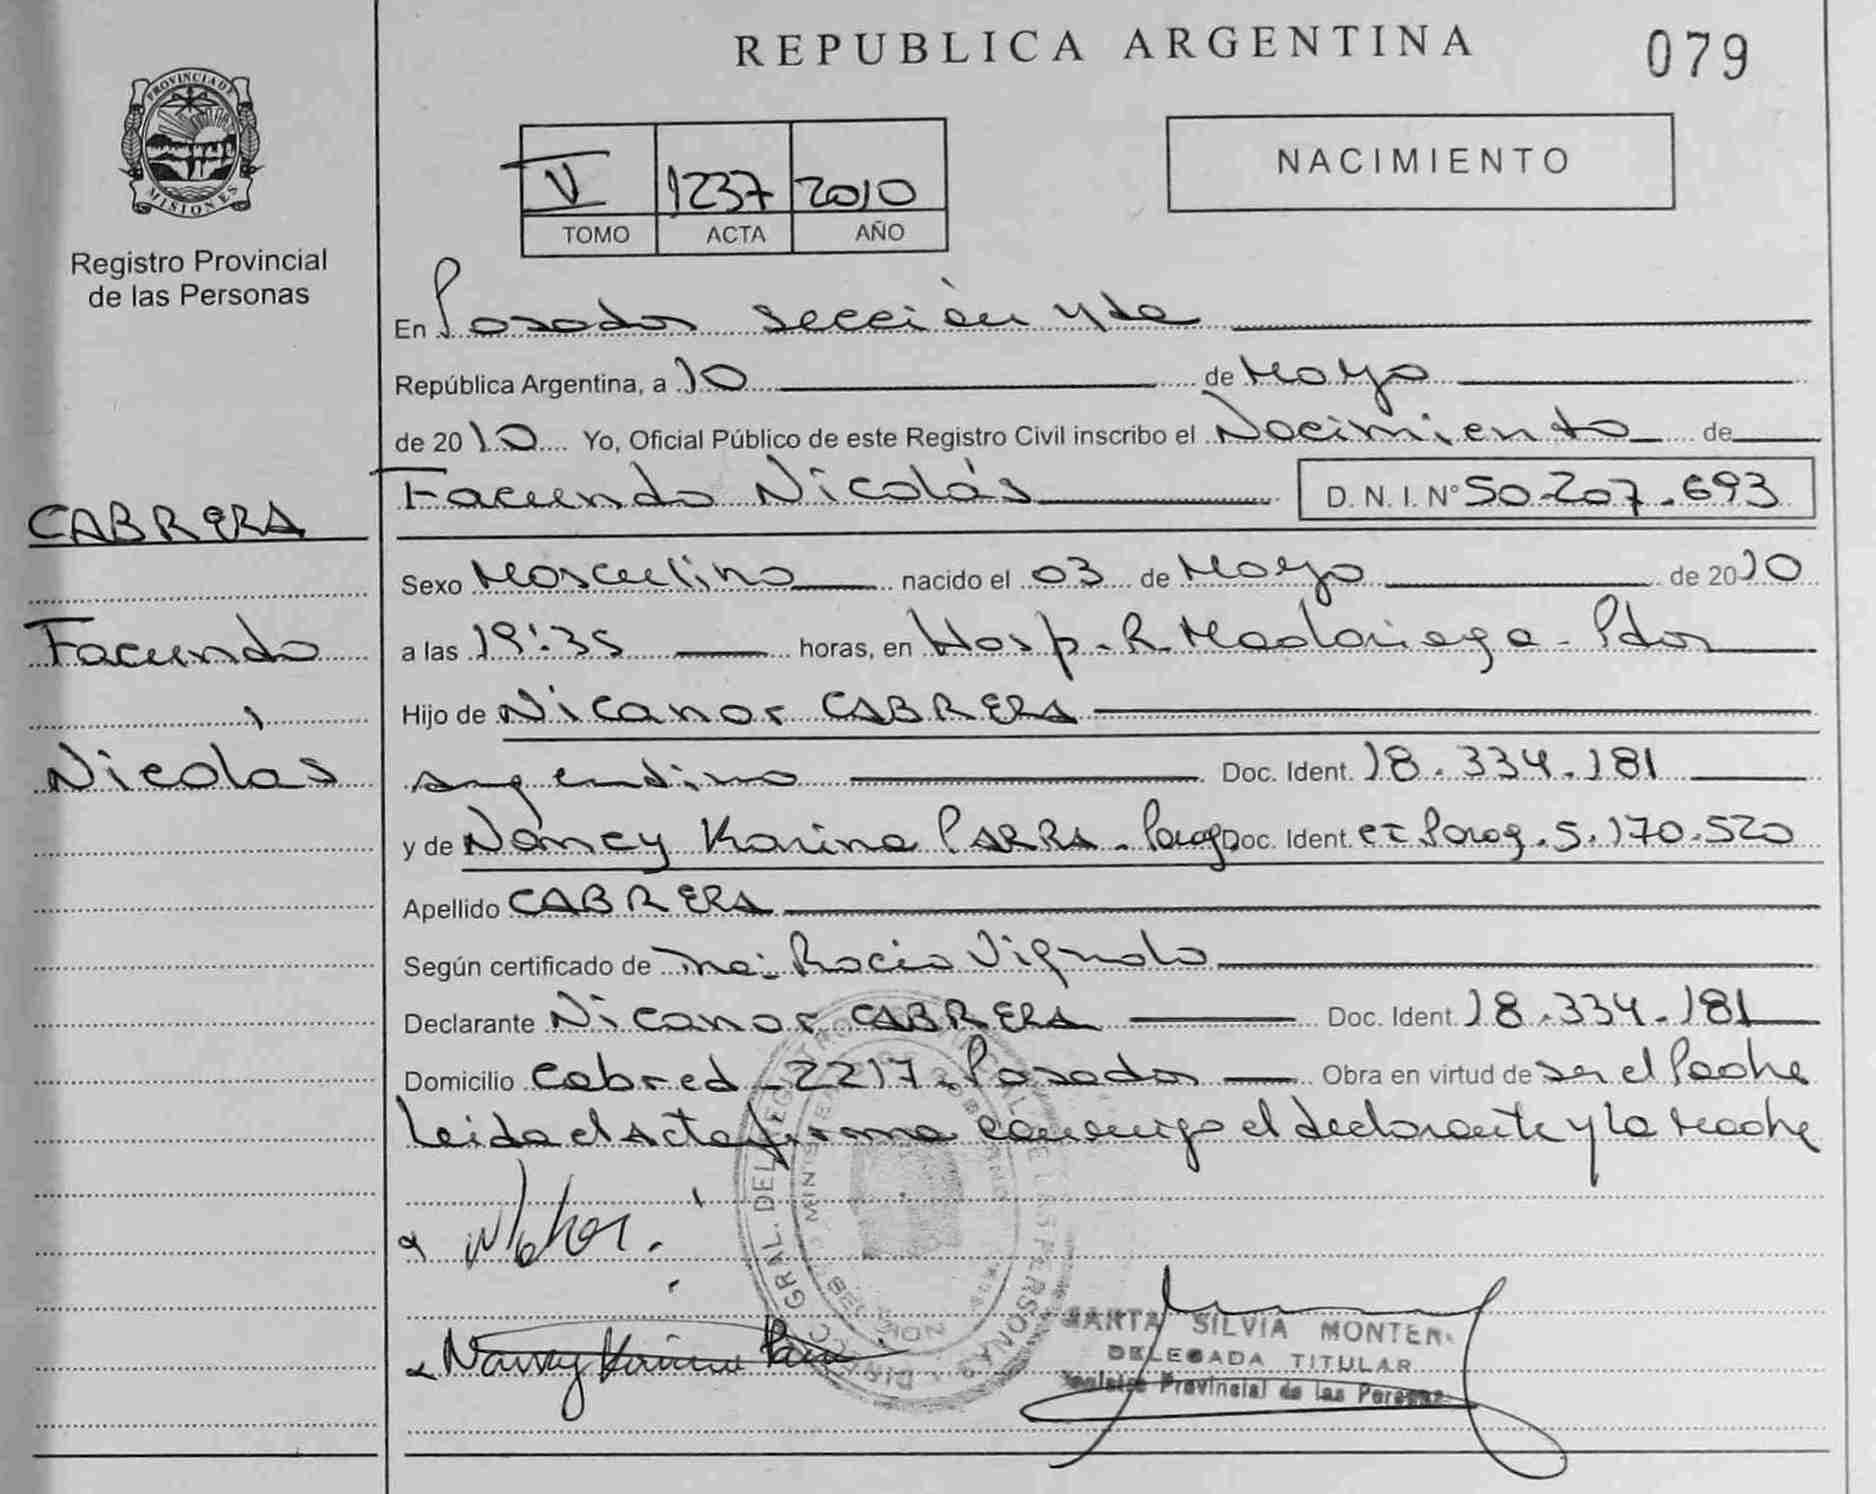 REPUBLICA ARGENTINA
079
PROVINCIA DE MISIONES
Registro Provincial
de las Personas
V 1237 2010
TOMO ACTA AÑO
NACIMIENTO
En Posadas sección 4ta
República Argentina, a 10 de Mayo
de 2010 Yo, Oficial Público de este Registro Civil inscribo el Nacimiento de
Facundo Nicolás D. N. I. Nº 50.207.693
CABRERA
Facundo
Nicolás
Sexo Masculino nacido el 03 de Mayo de 2010
a las 19:35 horas, en Hosp. R. Madariaga - Pdas
Hijo de Nicanor CABRERA
argentino Doc. Ident. 18.334.181
y de Nancy Karina PARRA - Parag. Doc. Ident. CI Parag. 5.170.520
Apellido CABRERA
Según certificado de Rocio Vignolo
Declarante Nicanor CABRERA Doc. Ident. 18.334.181
Domicilio Cabred - 2217 - Posadas Obra en virtud de ser el Padre
Leida el Acta firma conmigo el declarante y la Madre
Nancy Karina
SILVIA
DELEGADA TITULAR
Provincial de las